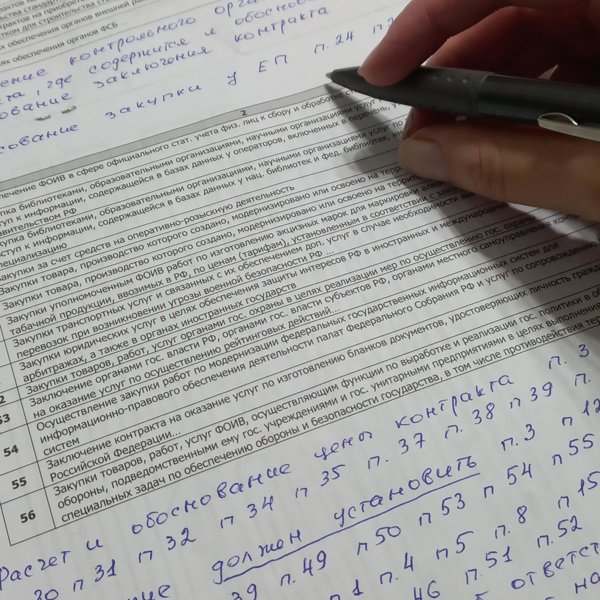 обеспечения органов ФСБ ...
контрольного
где содержится и обоснов
ование заключения контракта
сование закупки у ЕП п.24
2
печение ФОИВ в сфере официального стат. учета физ. лиц к сбору и обработке
упка библиотеками, образовательными организациями, научными организациями услуг
ступ к информации, содержащейся в базах данных у операторов, включенных в перечень,
авительством РФ
акупка библиотеками, образовательными организациями, научными организациями услуг по
оступ к информации, содержащейся в базах данных у нац. библиотек и фед. библиотек,
пециализацию
Закупки за счет средств на оперативно-розыскную деятельность
Закупки товара, производство которого создано, модернизировано или освоено на
Закупки товара, производство которого создано, модернизировано или освоено на
Закупки уполномоченным ФОИВ работ по изготовлению акцизных марок для маркировки
табачной продукции, ввозимых в РФ, по ценам (тарифам), установленных в соответствии с
Закупки транспортных услуг и связанных с их обеспечением доп. услуг в случае необходимости
перевозок при возникновении угрозы военной безопасности РФ ...
Закупки юридических услуг в целях обеспечения защиты интересов РФ в иностранных и
арбитражах, а также в органах иностранных государств
Закупки товаров, работ, услуг органами гос. охраны в целях реализации мер по осуществлению гос. охраны
Заключение органами гос. власти РФ, органами гос. власти субъектов РФ, органами местного самоуправления
на оказание услуг по осуществлению рейтинговых действий...
53 Осуществление закупки работ по модернизации федеральных государственных информационных систем для
информационно-правового обеспечения деятельности палат Федерального Собрания РФ и услуг по сопровождению
систем
54 Заключение контракта на оказание услуг по изготовлению бланков документов, удостоверяющих личность
Российской Федерации...
55 Закупки товаров, работ, услуг ФОИВ, осуществляющим функции по выработке и реализации гос. политики в
обороны, подведомственными ему гос. учреждениями и гос. унитарными предприятиями в целях
56 специальных задач по обеспечению обороны и безопасности государства, в том числе противодействия
Расчет и обоснование цены контракта п. 3
30 п 31 п 32 п 34 п 35 п. 37 п. 38 п 39 п.
должен установить п. 3 п 12
39 п. 49 п 50 п 53 п 54 п 55
п. 1 п. 4 п 5 п. 8 п 15
46 п. 51 п. 52